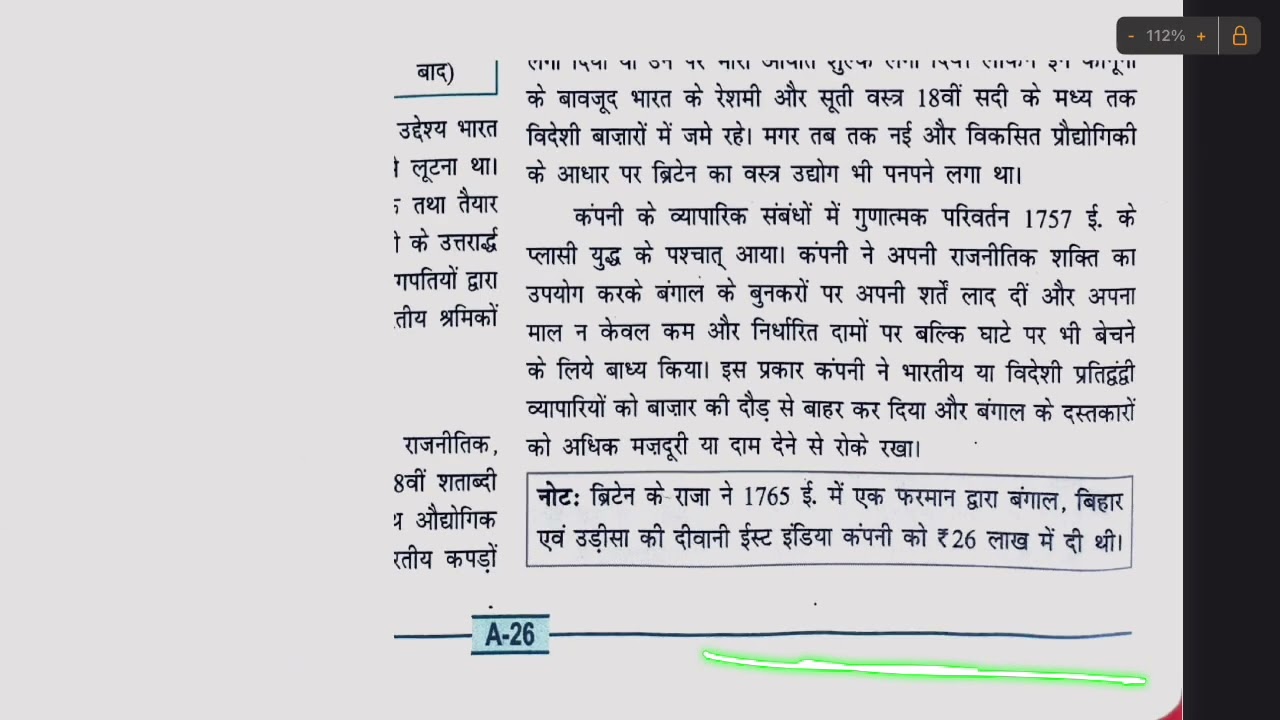 बाद)
उद्देश्य भारत
लूटना था।
तथा तैयार
के उत्तरार्द्ध
गपतियों द्वारा
तीय श्रमिकों
राजनीतिक,
8वीं शताब्दी
औद्योगिक
रतीय कपड़ों
के बावजूद भारत के रेशमी और सूती वस्त्र 18वीं सदी के मध्य तक
विदेशी बाज़ारों में जमे रहे। मगर तब तक नई और विकसित प्रौद्योगिकी
के आधार पर ब्रिटेन का वस्त्र उद्योग भी पनपने लगा था।
कंपनी के व्यापारिक संबंधों में गुणात्मक परिवर्तन 1757 ई. के
प्लासी युद्ध के पश्चात् आया। कंपनी ने अपनी राजनीतिक शक्ति का
उपयोग करके बंगाल के बुनकरों पर अपनी शर्तें लाद दीं और अपना
माल न केवल कम और निर्धारित दामों पर बल्कि घाटे पर भी बेचने
के लिये बाध्य किया। इस प्रकार कंपनी ने भारतीय या विदेशी प्रतिद्वंद्वी
व्यापारियों को बाज़ार की दौड़ से बाहर कर दिया और बंगाल के दस्तकारों
को अधिक मज़दूरी या दाम देने से रोके रखा।
नोटः ब्रिटेन के राजा ने 1765 ई. में एक फरमान द्वारा बंगाल, बिहार
एवं उड़ीसा की दीवानी ईस्ट इंडिया कंपनी को ₹26 लाख में दी थी।
A-26
- 112% +